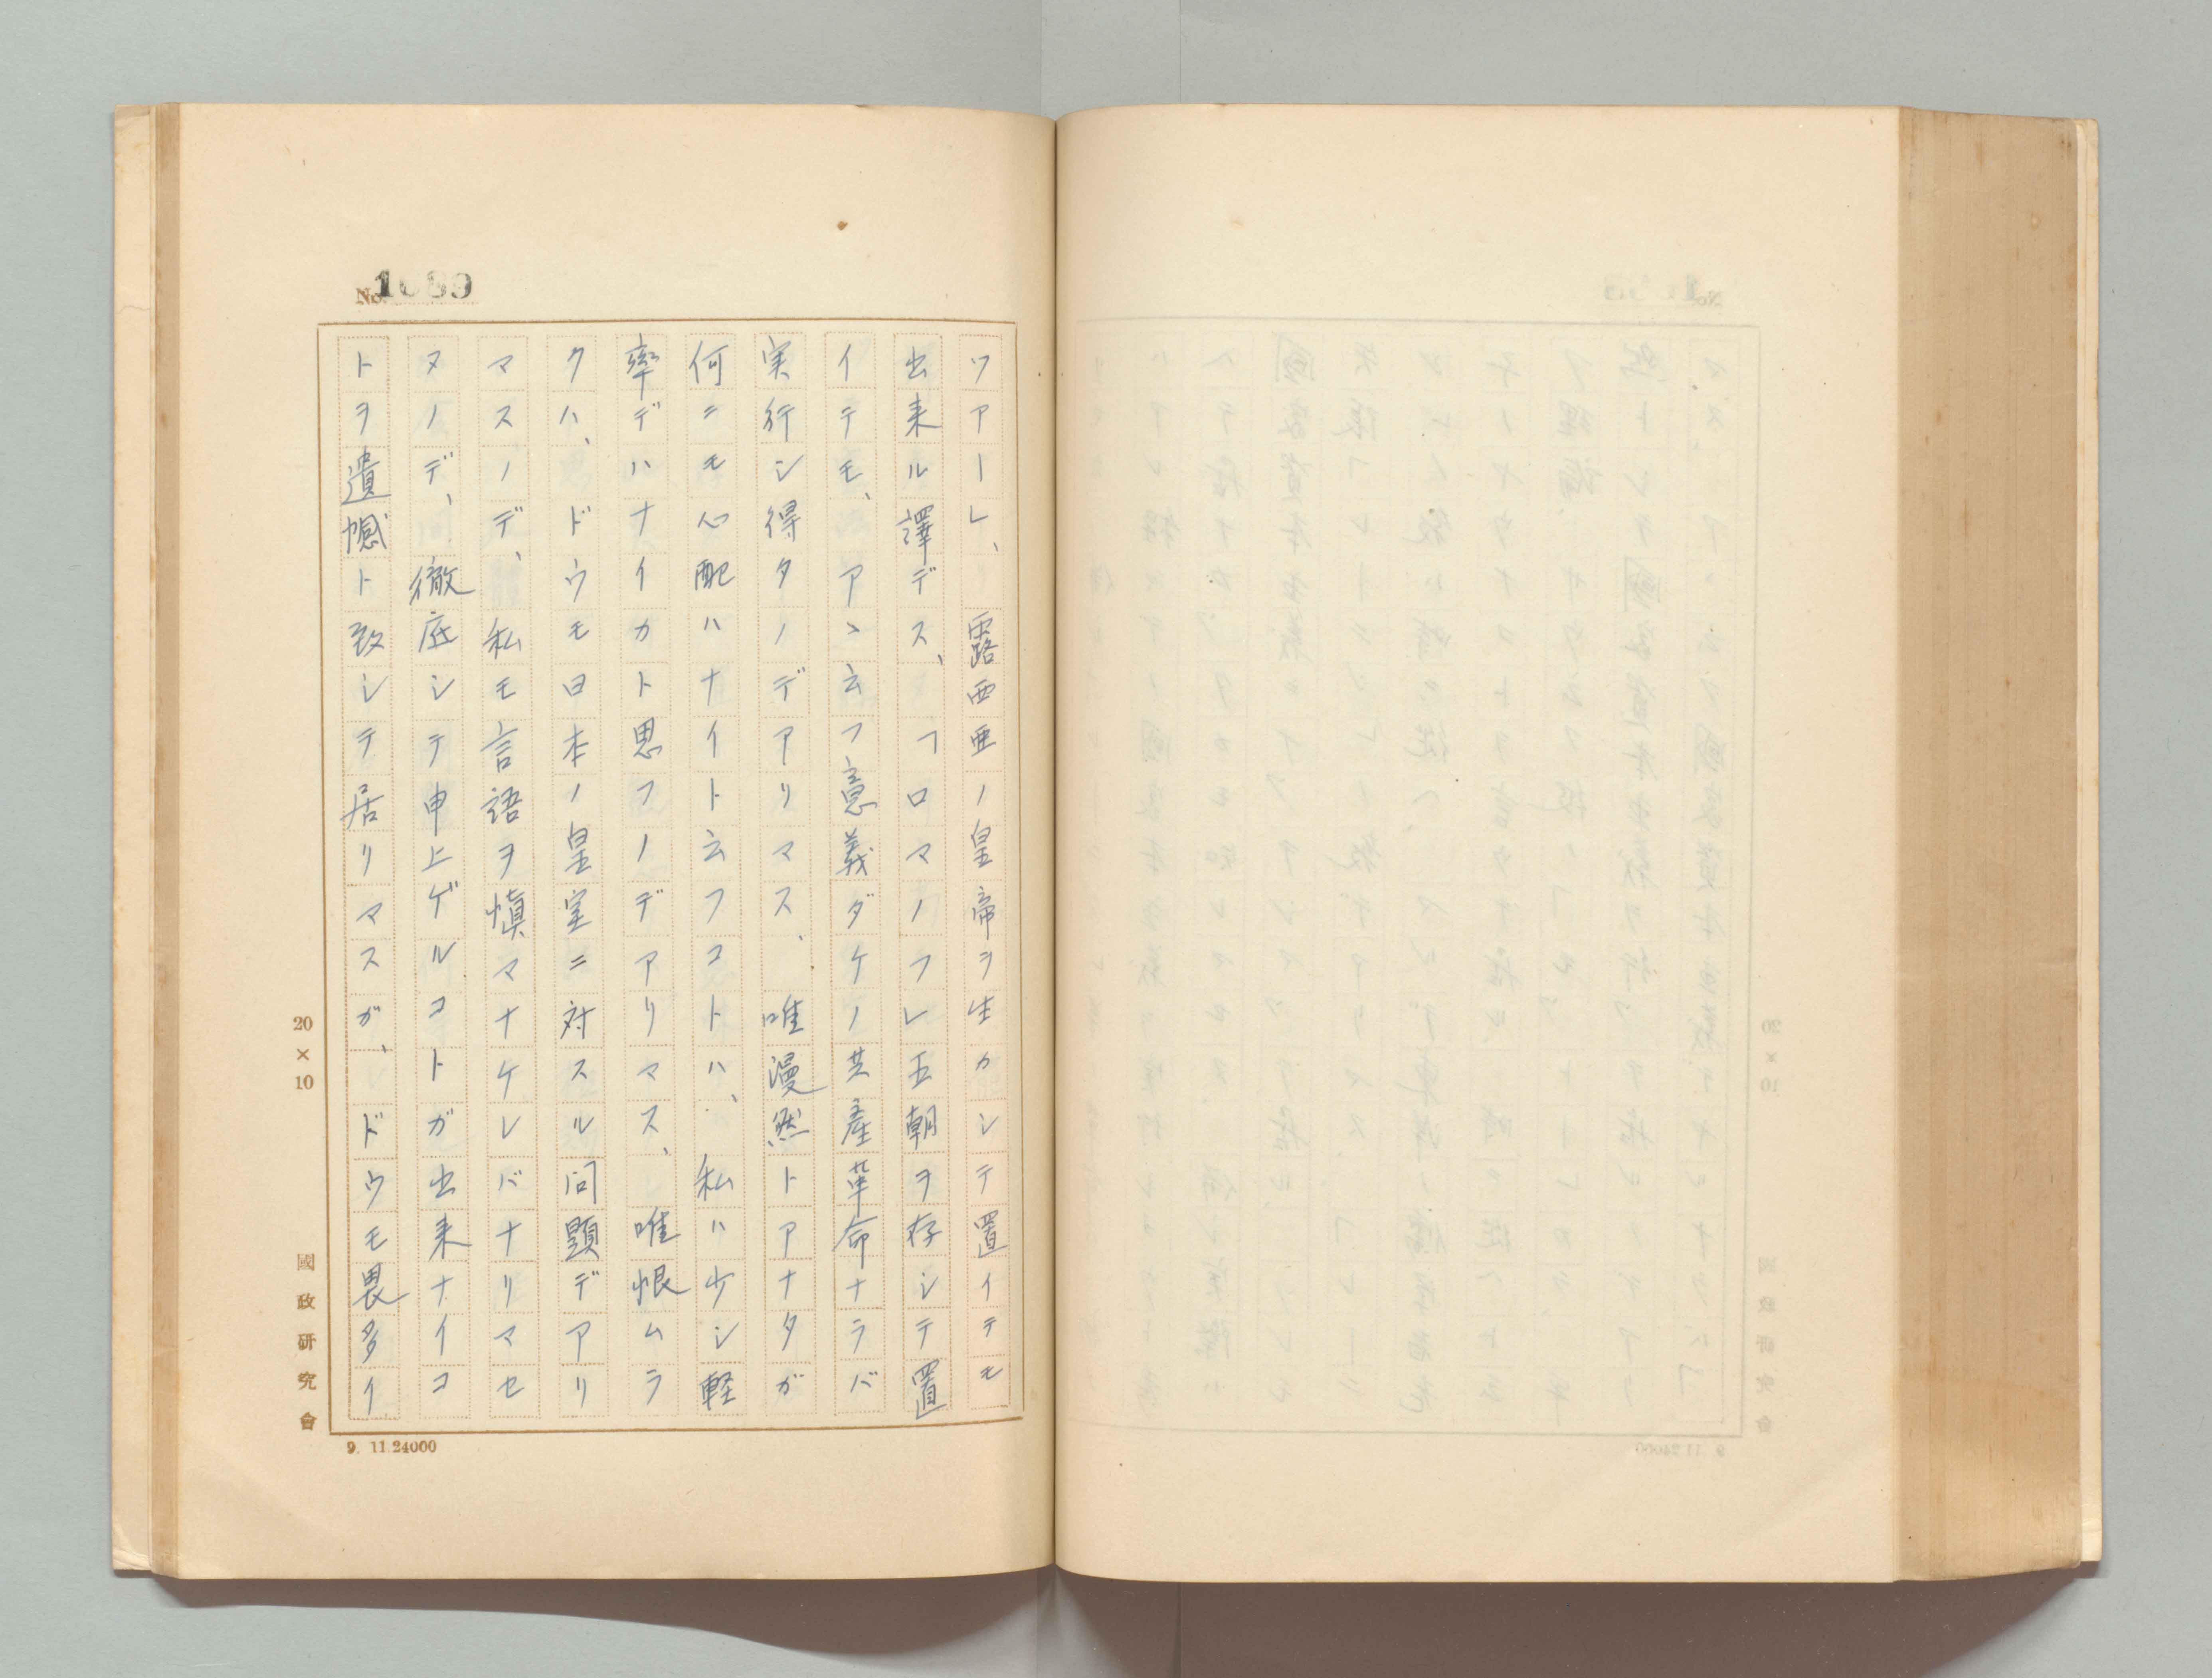 No. 1089
ツアーレ、露西亜ノ皇帝ヲ生カシテ置イテモ
出来ル譯デス、フロマノフレ王朝ヲ存シテ置
イテモ、アヽ云フ意義ダケノ共産革命ナラバ
実行シ得タノデアリマス、唯漫然トアナタガ
何ニモ心配ハナイト云フコトハ、私ハ少シ軽
率デハナイカト思フノデアリマス、唯恨ムラ
クハ、ドウモ日本ノ皇室ニ対スル問題デアリ
マスノデ、私モ言語ヲ慎マナケレバナリマセ
ヌノデ、徹底シテ申上ゲルコトガ出来ナイコ
トヲ遺憾ト致シテ居リマスガ、ドウモ畏多イ
20×10
國政研究會
9. 11.24000